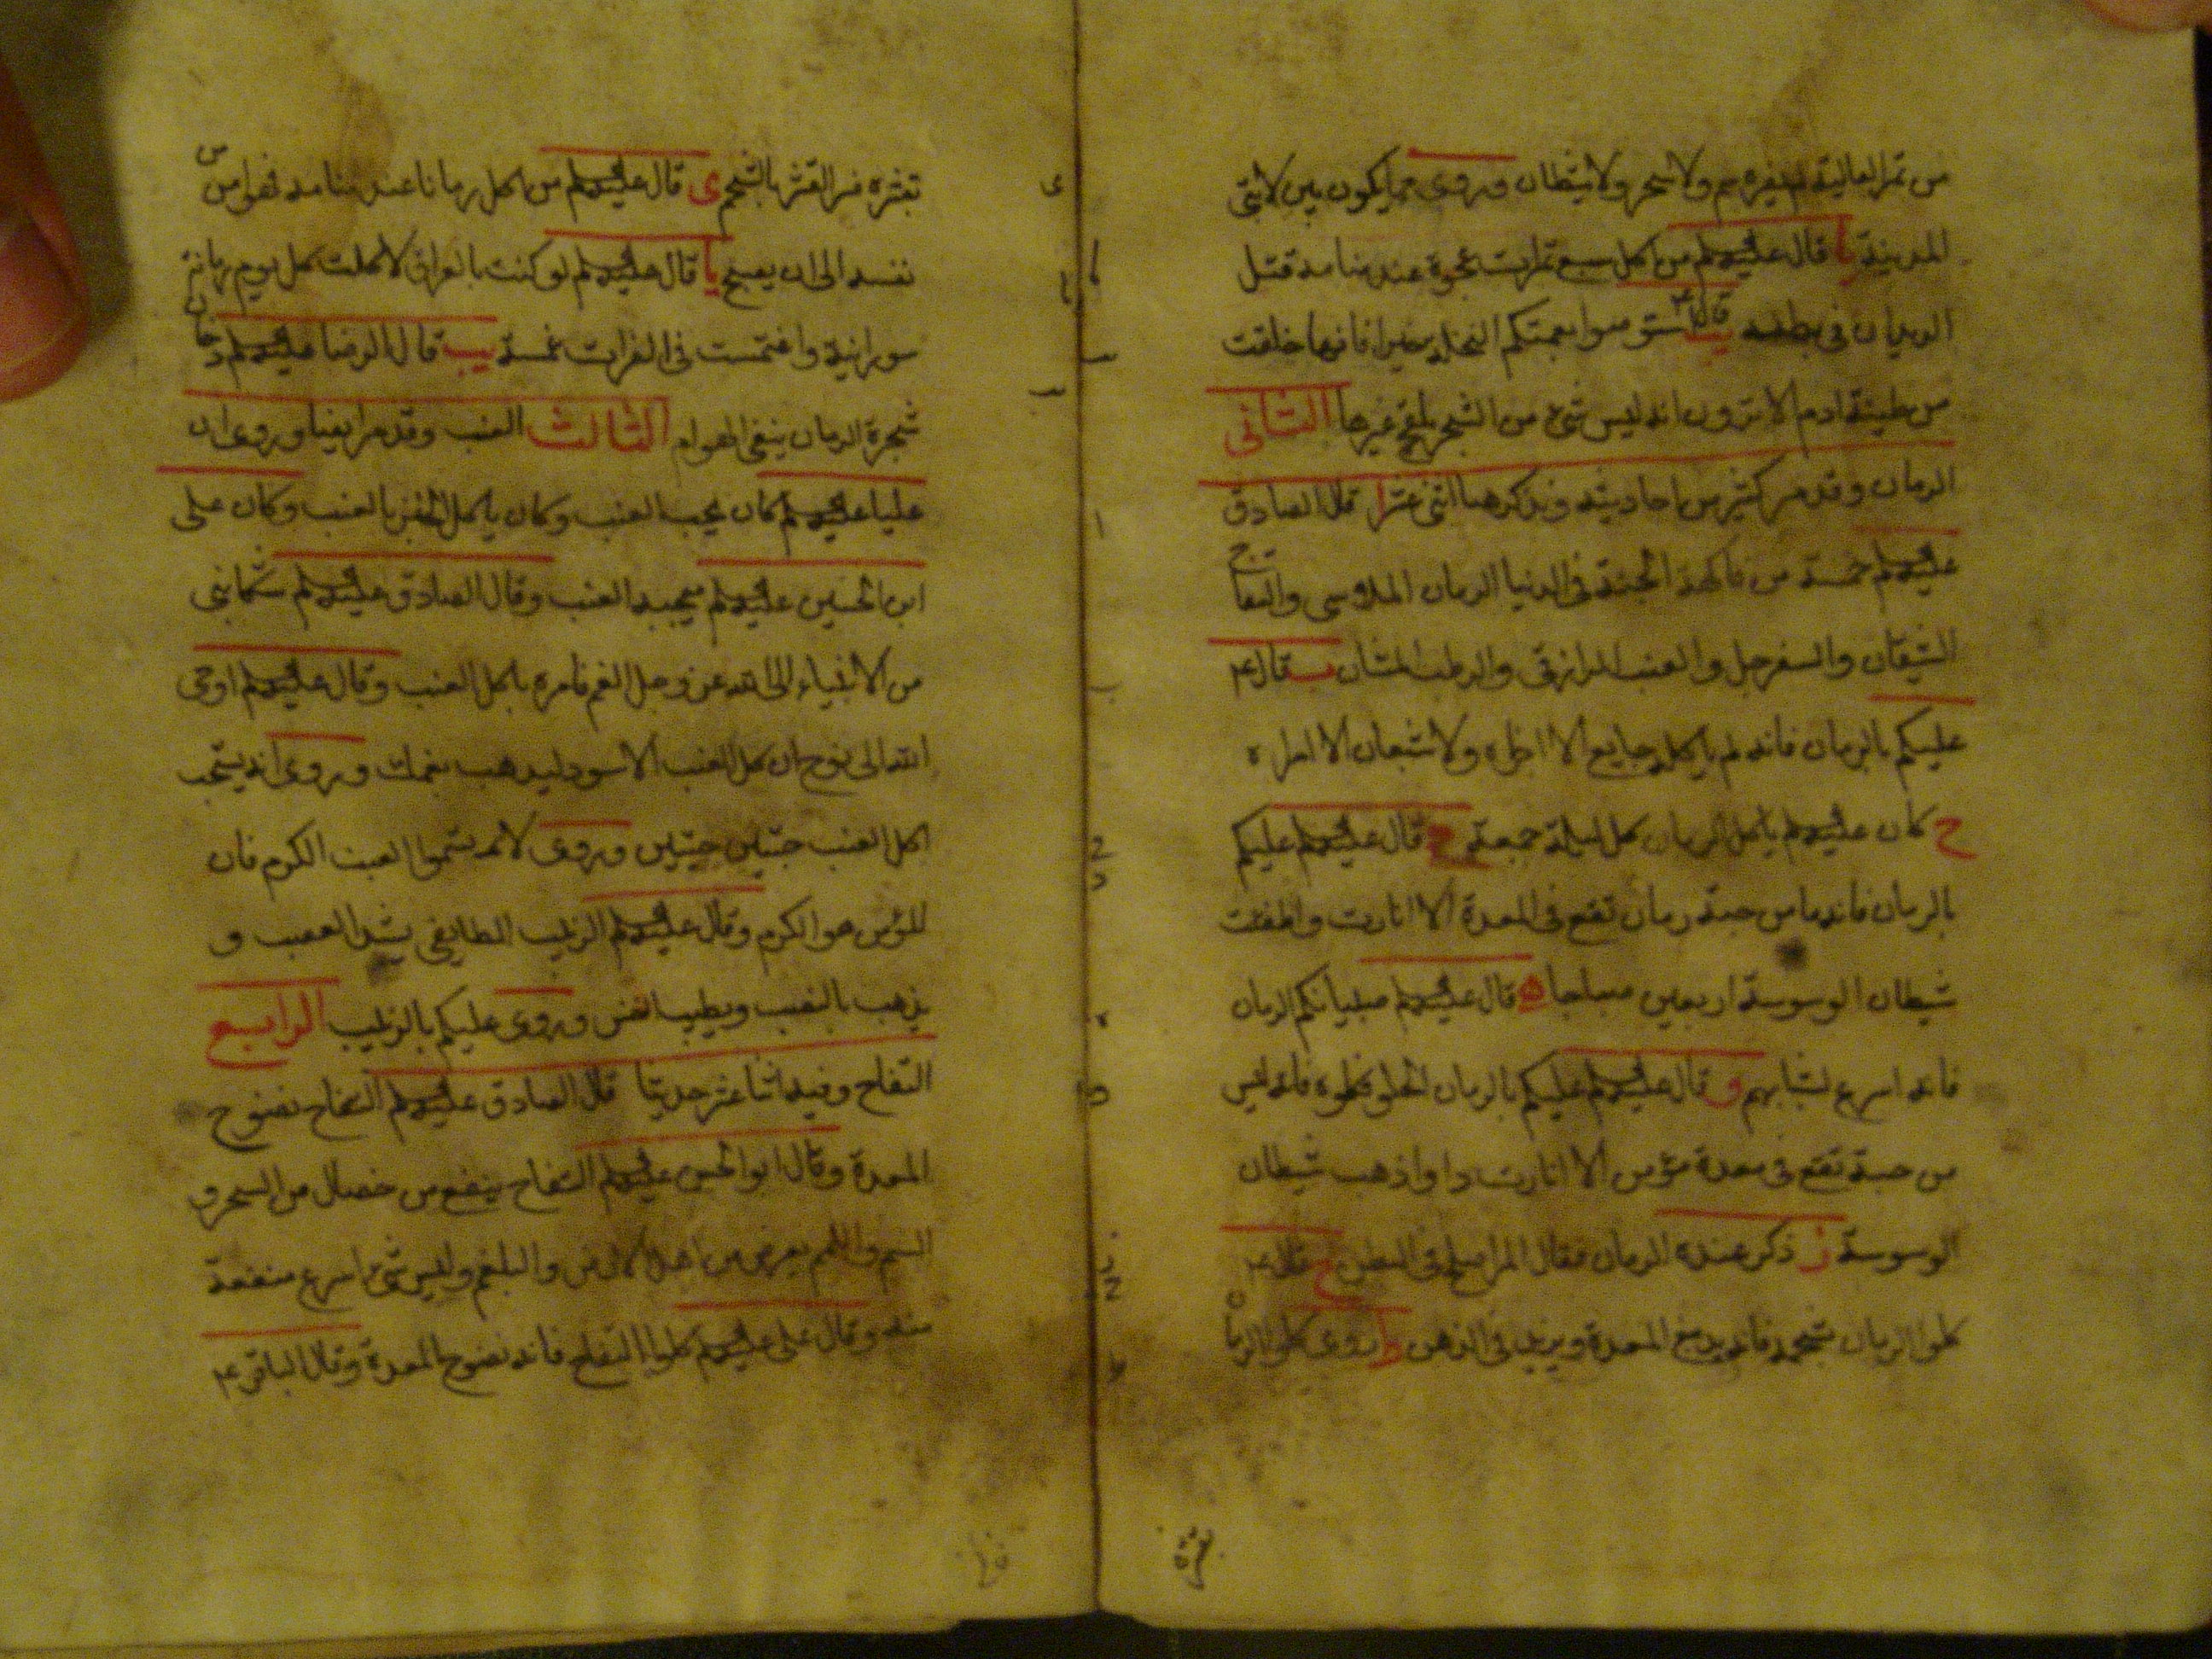 من تمر العالية لم يضره سم ولا سحر ولا شيطان وروى مما يكون بين لابتي
المدينة يا قال عليه السلم من اكل سبع تمرات عجوة عند منامه قتلن
الديدان في بطنه يب قال ع استوصوا بعمتكم النخلة خيرا فانها خلقت
من طينة ادم الا ترون انه ليس شئ من الشجر يلقح غيرها الثانى
الرمان وقد مر كثير من احاديثه ونذكر هنا اثنى عشر ا قال الصادق
عليه السلم خمسة من فاكهة الجنة في الدنيا الرمان الملاسى والتفاح
الشيقان والسفرجل والعنب الرازقى والرطب المشان ب قال ع
عليكم بالرمان فانه لم ياكله جايع الا اجزاه ولا شبعان الا امراه
ج كان عليه السلم ياكل الرمان كل ليلة جمعة د قال عليه السلم عليكم
بالرمان فانه ما من حبة رمان تقع في المعدة الا انارت واطفئت
شيطان الوسوسة اربعين صباحا ه قال عليه السلم صبيانكم الرمان
فانه اسرع لشبابهم و قال عليه السلم عليكم بالرمان الحلو فكلوه فانه ليس
من حبة تقع في معدة مؤمن الا انارت دا واذهب شيطان
الوسوسة ز ذكر عنده الرمان فقال المز اصلح في البطن ح قال ع
كلوا الرمان بشحمه فانه يدبغ المعدة ويزيد في الذهن ط روى كلوا الرمان
بقشره ى قال عليه السلم من اكل رمانا عند منامه فهو امن من
نفسه الى ان يصبح يا قال عليه السلم لو كنت بالعراق لاكلت كل يوم رمانة
سورانية واغتمست في الفرات غمسة يب قال الرضا عليه السلم دخان
شجرة الرمان ينفى الهوام الثالث العنب وقد مر ايضا وروى ان
عليا عليه السلم كان يحب العنب وكان ياكل الخبز بالعنب وكان على
ابن الحسين عليه السلم يعجبه العنب وقال الصادق عليه السلم شكا نبى
من الانبياء الى الله عز وجل الغم فامره باكل العنب وقال عليه السلم اوحى
الله الى نوح ان كل العنب الاسود ليذهب بغمك وروى انه يستحب
اكل العنب حبتين حبتين وروى لا تسموا العنب الكرم فان
المؤمن هو الكرم وقال عليه السلم الزبيب الطايفى يشد العصب و
يذهب بالنصب ويطيب النفس وروى عليكم بالزبيب الرابع
التفاح وفيه اثنا عشر حديثا قال الصادق عليه السلم التفاح نضوح
المعدة وقال ابو الحسن عليه السلم التفاح ينفع من خصال من السحر و
السم واللمم يعرض من اهل الارض والبلغم وليس شئ اسرع منفعة
منه وقال على عليه السلم كلوا التفاح فانه نضوح المعدة وقال الباقر ع